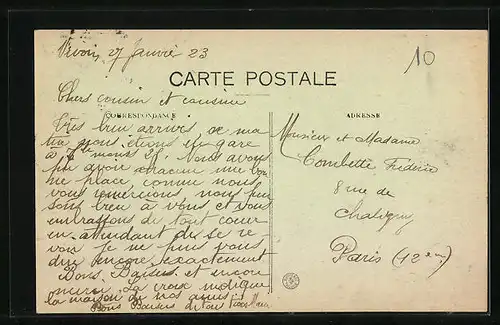 27 Janvié 23
10
CARTE POSTALE
Chers cousin et cousine
CORRESPONDANCE
ADRESSE
Très bien arrivés, ce ma
tin nous étions en gare
à 7h moins 25. Nous avons
pu avoir chacun une bon
ne place, comme nous
vous remercions, nous pen
sont bien à vous et vous
embrassons de tout coeur
en attendant de se re
voir je ne peux vous
dire encore exactement
Bons Baisers et encore
merci. La croix indique
la maison de nos amis
Bons Baisers de
Monsieur et Madame
Combette Frédéric
8 rue de
Chaligny
Paris (12em)